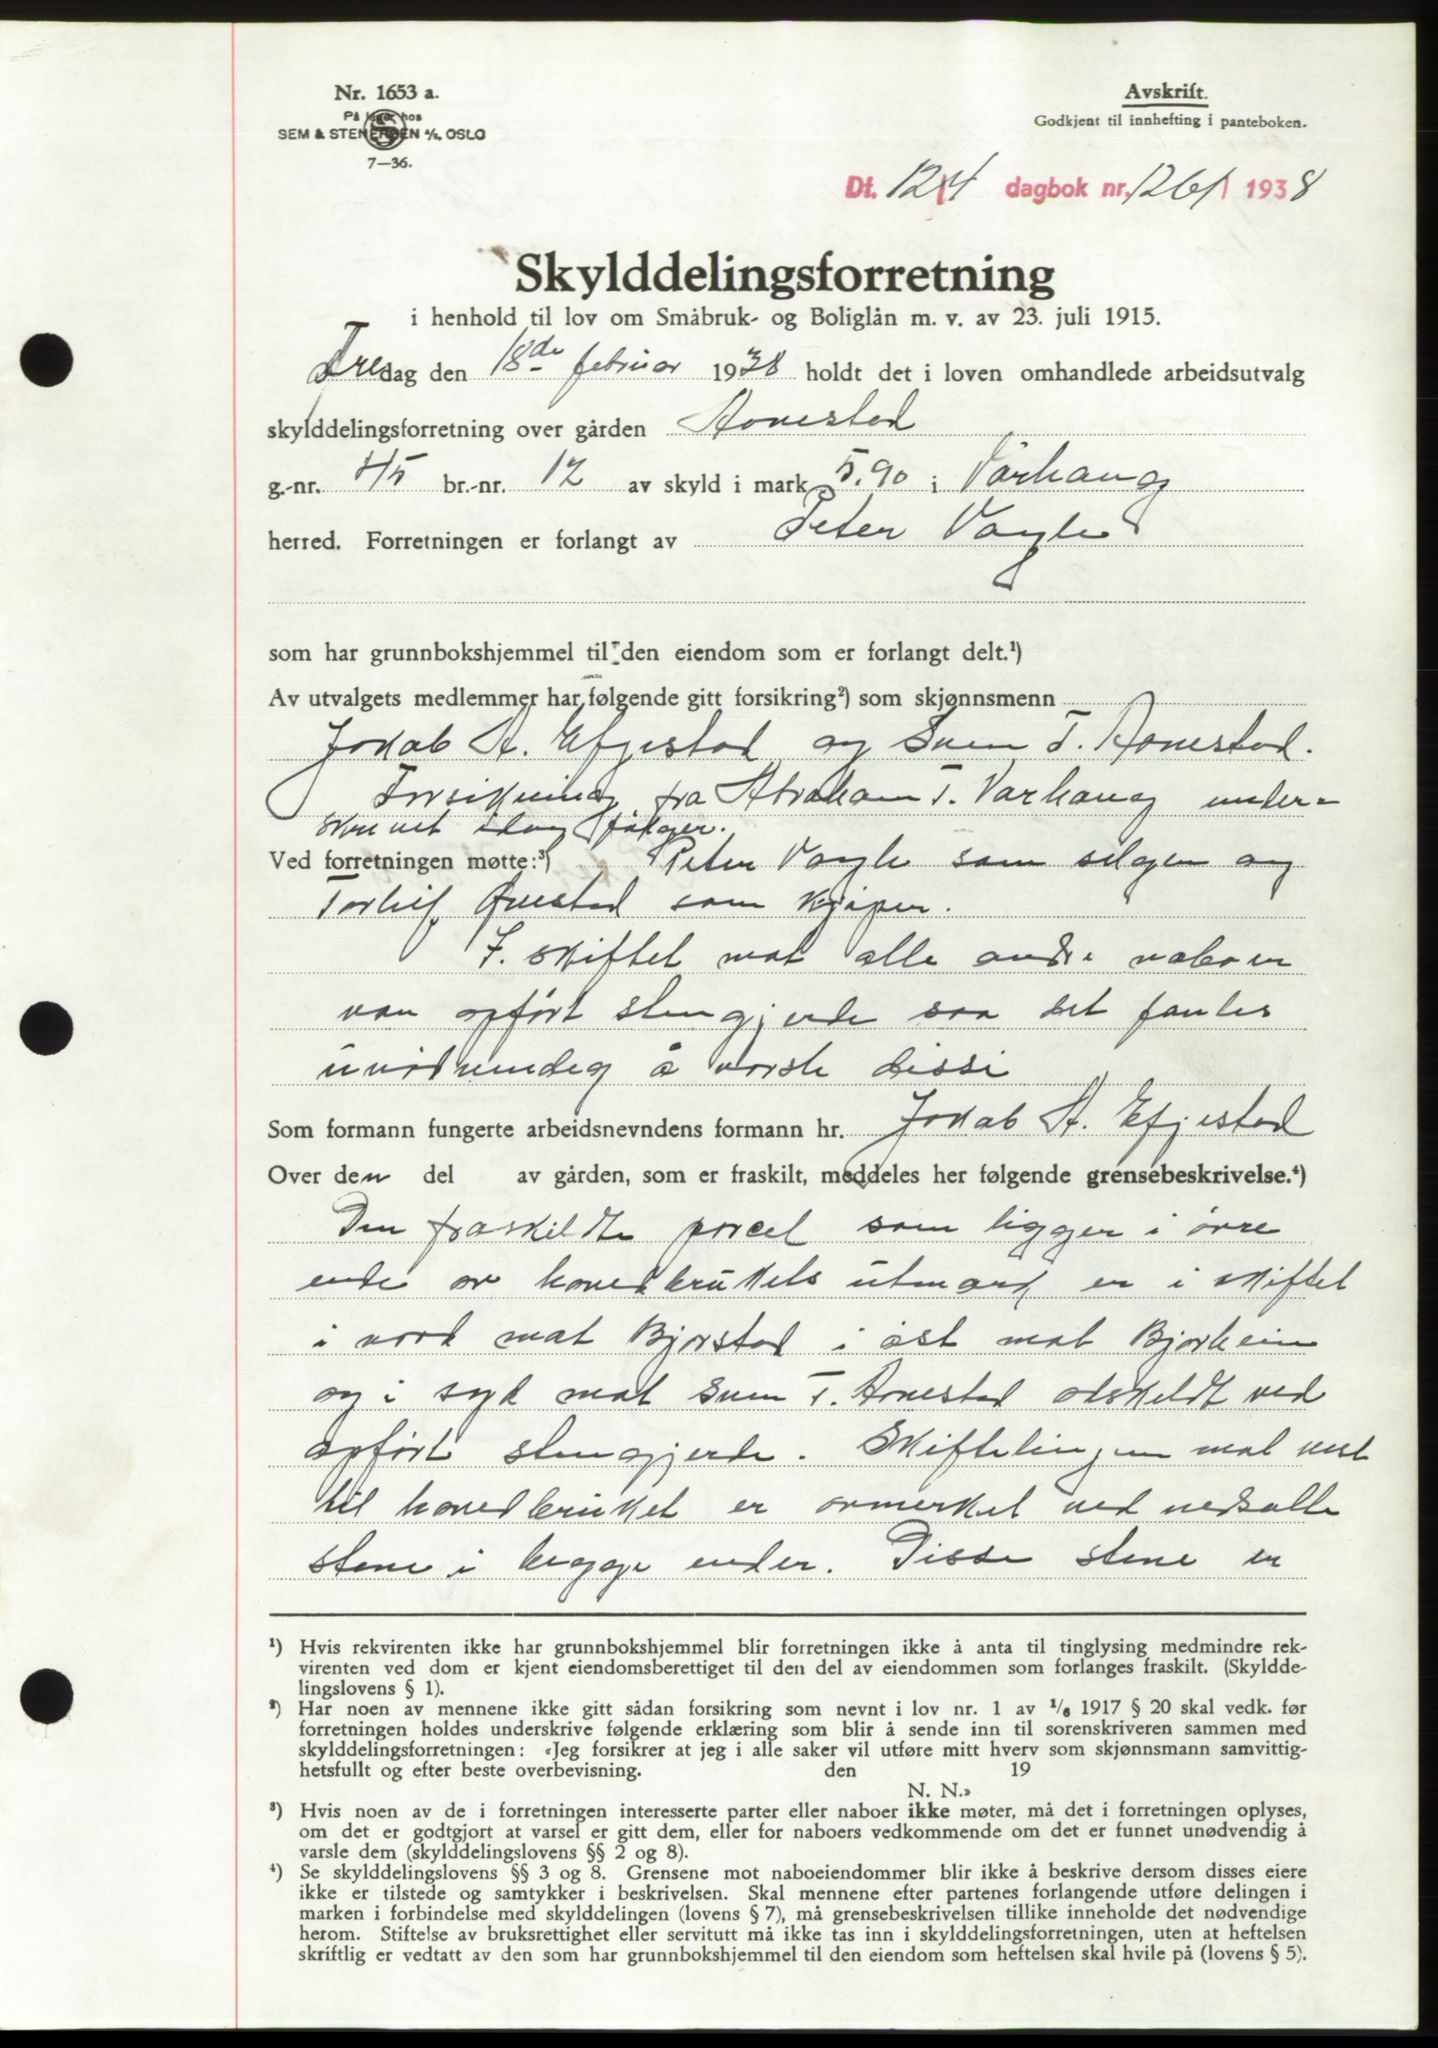 Nr. 1653 a.
På lager hos
SEM & STENERSEN A/S, OSLO
7—36.
Avskrift.
Godkjent til innhefting i panteboken.
Df. 12/4 dagbok nr. 1261 1938
Skylddelingsforretning
i henhold til lov om Småbruk- og Boliglån m. v. av 23. juli 1915.
Fredag den 18de februar 1938 holdt det i loven omhandlede arbeidsutvalg
skylddelingsforretning over gården Aanestad
g.-nr. 45 br.-nr. 12 av skyld i mark 5.90 i Varhaug
herred. Forretningen er forlangt av Peter Vagle
som har grunnbokshjemmel til den eiendom som er forlangt delt.¹)
Av utvalgets medlemmer har følgende gitt forsikring²) som skjønnsmenn
Jakob A. Efjestad og Sven T. Aanestad.
Forsikning fra Abraham T. Varhaug under-
skrivet idag følger.
Ved forretningen møtte:³) Peter Vagle som selger og
Torleif Ånestad som kjøper.
I skiftet mot alle andre naboer
var opført stengjerde saa det fantes
unødvendig å varsle disse
Som formann fungerte arbeidsnevndens formann hr. Jakob A. Efjestad
Over den del av gården, som er fraskilt, meddeles her følgende grensebeskrivelse.⁴)
Den fraskildte parcel som ligger i øvre
ende av hovedbrukets utmark er i skiftet
i nord mot Bjorstad i øst mot Bjorheim
og i syd mot Sven T. Aanestad adskildt ved
opført stengjerde. Skiftelinjen mot vest
til hovedbruket er avmerket ved nedsatte
stene i begge ender. Disse stene er
¹) Hvis rekvirenten ikke har grunnbokshjemmel blir forretningen ikke å anta til tinglysing medmindre rek-
virenten ved dom er kjent eiendomsberettiget til den del av eiendommen som forlanges fraskilt. (Skyldde-
lingslovens § 1).
²) Har noen av mennene ikke gitt sådan forsikring som nevnt i lov nr. 1 av ¹/₆ 1917 § 20 skal vedk. før
forretningen holdes underskrive følgende erklæring som blir å sende inn til sorenskriveren sammen med
skylddelingsforretningen: «Jeg forsikrer at jeg i alle saker vil utføre mitt hverv som skjønnsmann samvittig-
hetsfullt og efter beste overbevisning. den 19
N. N.»
³) Hvis noen av de i forretningen interesserte parter eller naboer ikke møter, må det i forretningen oplyses,
om det er godtgjort at varsel er gitt dem, eller for naboers vedkommende om det er funnet unødvendig å
varsle dem (skylddelingslovens §§ 2 og 8).
⁴) Se skylddelingslovens §§ 3 og 8. Grensene mot naboeiendommer blir ikke å beskrive dersom disses eiere
ikke er tilstede og samtykker i beskrivelsen. Skal mennene efter partenes forlangende utføre delingen i
marken i forbindelse med skylddelingen (lovens § 7), må grensebeskrivelsen tillike inneholde det nødvendige
herom. Stiftelse av bruksrettighet eller servitutt må ikke tas inn i skylddelingsforretningen, uten at heftelsen
skriftlig er vedtatt av den som har grunnbokshjemmel til den eiendom som heftelsen skal hvile på (lovens § 5).